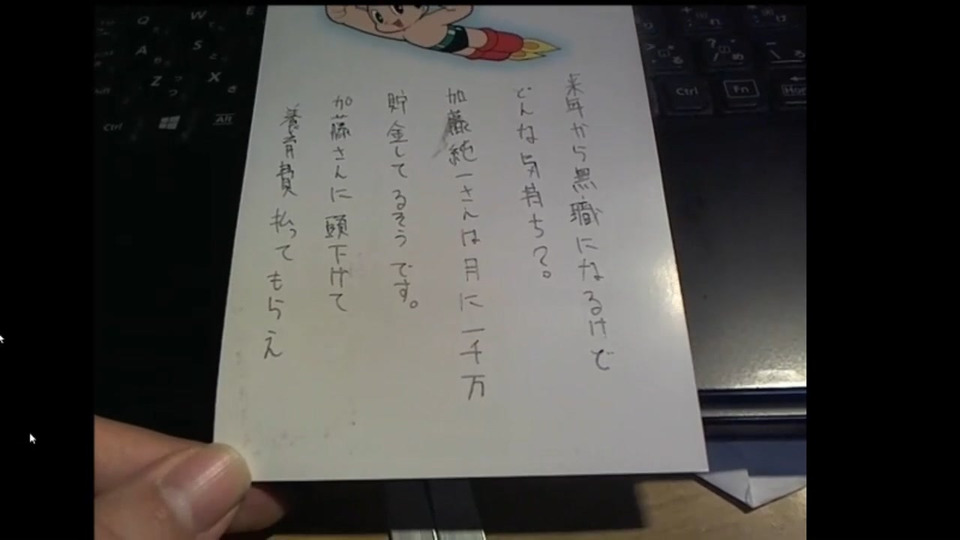 来年から無職になるけど
どんな気持ち?。
加藤純一さんは月に一千万
貯金してるそうです。
加藤さんに頭下げて
養育費払ってもらえ
Q
W
E
A
S
Z
X
Ctrl
Alt
Ctrl
Fn